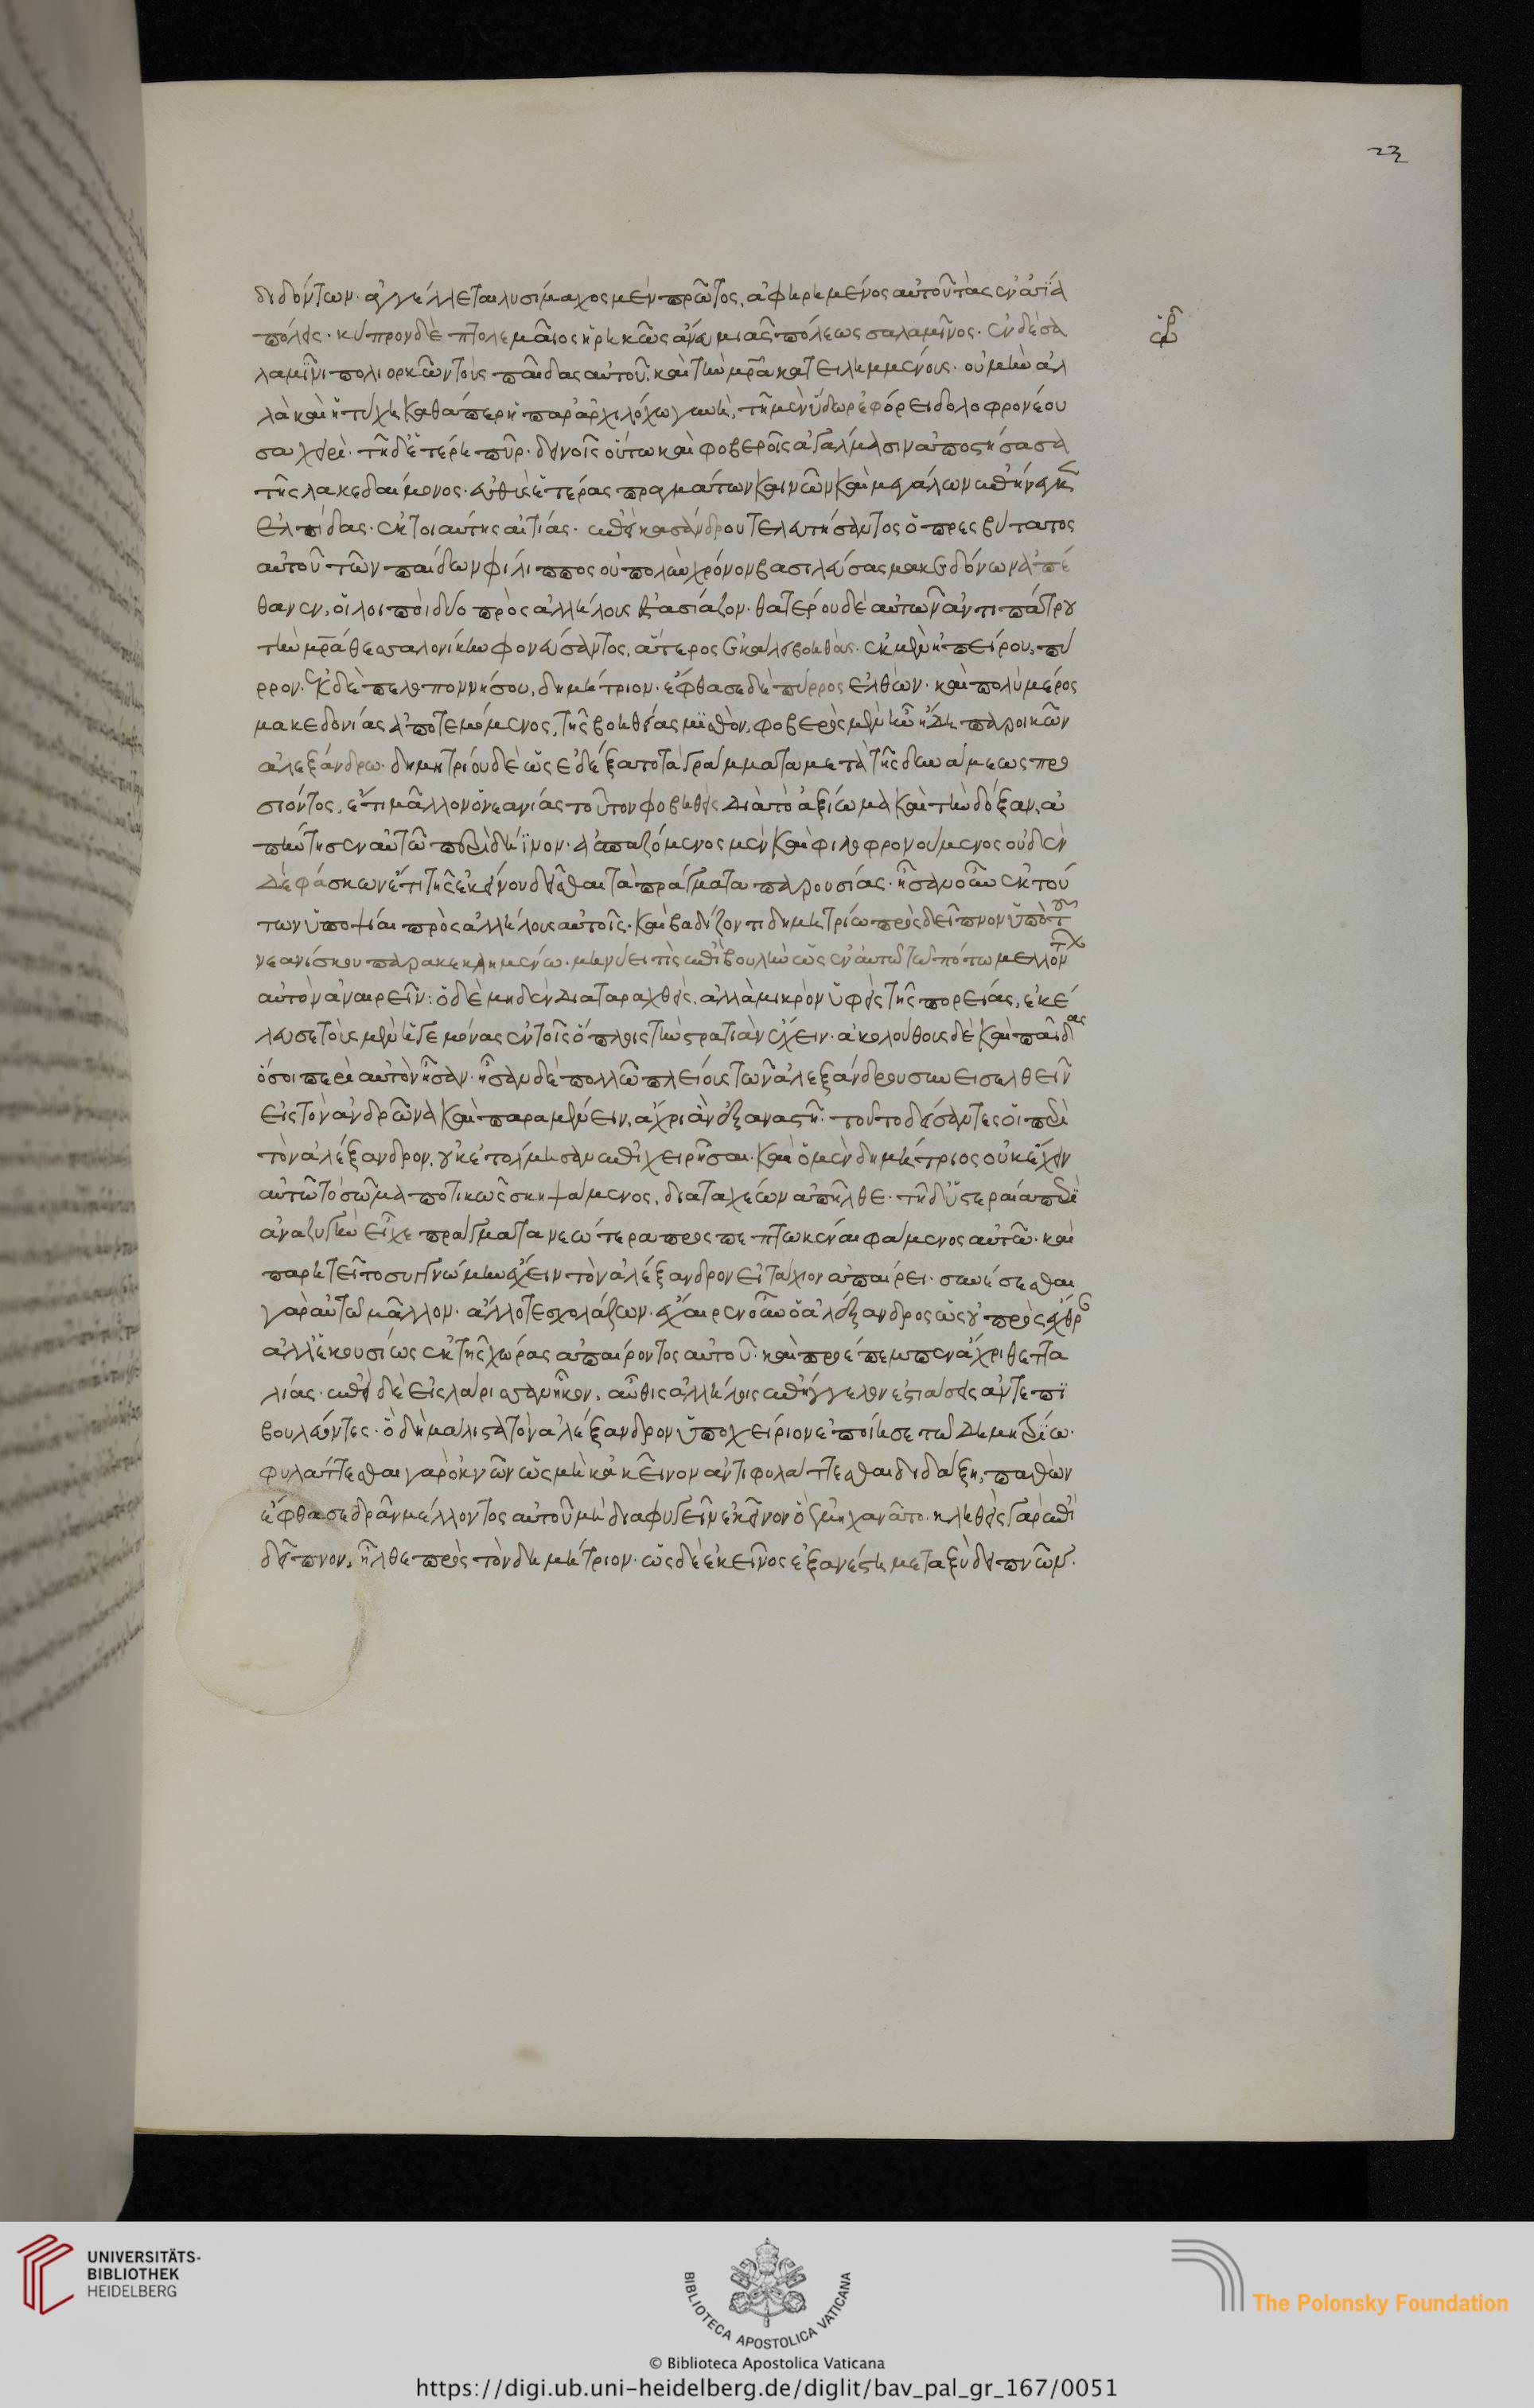 23
διδόντων· ἀγγέλλεται λυσίμαχος μὲν πρῶτος, ἀφηρημένος αὐτοῦ τὰς ἐν ἀσία
πόλεις· κύπρον δὲ πτολεμαῖος ἡρηκὼς ἄνευ μιᾶς πόλεως σαλαμῖνος· ἐν δὲ σα
λαμῖνι πολιορκῶν τοὺς παῖδας αὐτοῦ, καὶ τὴν μρα κατειλημμένους· οὐ μὴν ἀλ
λὰ καὶ ἡ τύχη καθάπερ ἡ παρ' ἀρχιλόχω γυνὴ, τῆ μὲν ὕδωρ ἐφόρει δολοφρονέου
σα χειρὶ· τῆ δ' ἑτέρη πῦρ· δεινοῖς οὕτω καὶ φοβεροῖς ἀγγέλμασιν ἀποστήσασα
τῆς λακεδαίμονος· εὐθὺς ἑτέρας πραγμάτων καινῶν καὶ μεγάλων ἐπήνεγκεν
ἐλπίδας· ἐκ τοιαύτης αἰτίας· ἐπεὶ κασάνδρου τελευτήσαντος ὁ πρεσβύτατος
αὐτοῦ τῶν παίδων φίλιππος οὐ πολὺν χρόνον βασιλεύσας μακεδόνων ἀπέ
θανεν, οἱ λοιποὶ δύο πρὸς ἀλλήλους ἐστασίαζον· θατέρου δὲ αὐτῶν ἀντιπάτρου
τὴν μρα θεσσαλονίκην φονεύσαντος, ἅτερος ἐκάλει βοηθοὺς· ἐκ μὲν ἠπείρου, πύ
ρρον· ἐκ δὲ πελοποννήσου, δημήτριον· ἔφθασε δὲ πύρρος ἐλθὼν· καὶ πολὺ μέρος
μακεδονίας ἀποτεμόμενος, τῆς βοηθείας μισθὸν, φοβερὸς μὲν ἦν ἤδη παροικῶν
ἀλεξάνδρω· δημητρίου δὲ ὡς ἐδέξατο τὰ γράμματα μετὰ τῆς δυνάμεως προ
σιόντος, ἔτι μᾶλλον ὁ νεανίας τοῦτον φοβηθεὶς διὰ τὸ ἀξίωμα καὶ τὴν δόξαν, ἀ
πήντησεν αὐτῶ περὶ δῖνον· ἀσπαζόμενος μὲν καὶ φιλοφρονούμενος οὐδὲν
δὲ φάσκων ἔτι τῆς ἐκείνου δεῖσθαι τὰ πράγματα παρουσίας· ἦσαν οὖν ἐκ τού
των ὑποψίαι πρὸς ἀλλήλους αὐτοῖς· καὶ βαδίζοντι δημητρίω πρὸς δεῖπνον ὑπὸ τοῦ
νεανίσκου παρακεκλημένω· μηνύει τὶς ἐπιβουλὴν ὡς ἐν αὐτῶ τῶ πότω μελλόντων
αὐτὸν ἀναιρεῖν: ὁ δὲ μηδὲν διαταραχθεὶς, ἀλλὰ μικρὸν ὑφεὶς τῆς πορείας, ἐκέ
λευσε τοὺς μὲν ἡγεμόνας ἐν τοῖς ὅπλοις τὴν στρατιὰν ἔχειν· ἀκολούθους δὲ καὶ παῖδας
ὅσοι περὶ αὐτὸν ἦσαν· ἦσαν δὲ πολλῶ πλείους τῶν ἀλεξάνδρου συνεισελθεῖν
εἰς τὸν ἀνδρῶνα καὶ παραμένειν, ἄχρι ἂν ἐξαναστῆ· τοῦτο δείσαντες οἱ περὶ
τὸν ἀλέξανδρον, οὐκ ἐτόλμησαν ἐπιχειρῆσαι· καὶ ὁ μὲν δημήτριος οὐκ ἔχειν
αὐτῶ τὸ σῶμα ποτικῶς σκηψάμενος, διὰ ταχέων ἀπῆλθε· τῆ δ' ὑστεραία περὶ
ἀναζυγὴν εἶχε πράγματα νεώτερα προσπεπτωκέναι φάμενος αὐτῶ· καὶ
παρητεῖτο συγγνώμην ἔχειν τὸν ἀλέξανδρον εἰ τάχιον ἀπαίρει· συνέσεσθαι
γὰρ αὐτῶ μᾶλλον· ἄλλοτε σχολάζων· ἔχαιρεν οὖν ὁ ἀλέξανδρος ὡς οὐ πρὸς ἔχθρ
ἀλλ' ἑκουσίως ἐκ τῆς χώρας ἀπαίροντος αὐτοῦ· καὶ προέπεμπεν ἄχρι θεττα
λίας· ἐπεὶ δὲ εἰς λάρισσαν ἧκον, αὖθις ἀλλήλοις ἐπήγγελλον ἑστιάσεις ἀντεπι
βουλεύοντες· ὃ δὴ μάλιστα τὸν ἀλέξανδρον ὑποχείριον ἐποίησε τῶ δημητρίω·
φυλάττεσθαι γὰρ ὀκνῶν ὡς μὴ κἀκεῖνον ἀντιφυλάττεσθαι διδάξη, παθὼν
ἔφθασε δρᾶν μέλλοντος αὐτοῦ μὴ διαφυγεῖν ἐκεῖνον ὃ ἐμηχανᾶτο· κληθεὶς γὰρ ἐπὶ
δεῖπνον, ἦλθε πρὸς τὸν δημήτριον· ὡς δὲ ἐκεῖνος ἐξανέστη μεταξὺ δειπνῶν·
UNIVERSITÄTS-
BIBLIOTHEK
HEIDELBERG
BIBLIOTECA APOSTOLICA VATICANA
The Polonsky Foundation
© Biblioteca Apostolica Vaticana
https://digi.ub.uni-heidelberg.de/diglit/bav_pal_gr_167/0051